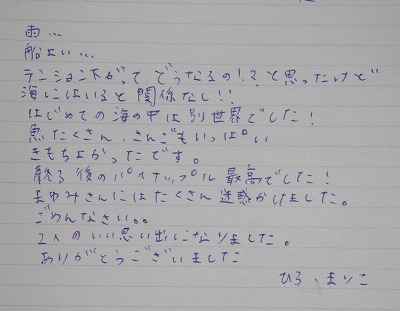 雨…
船よい…
テンション下がって どうなるの!?と思ったけど
海にはいると関係なし!!
はじめての海の中は別世界でした!
魚たくさん、さんごもいっぱい
きもちよかったです。
終了後のパイナップル 最高でした!
まゆみさんにはたくさん迷惑かけました。
ごめんなさい。。
2人のいい思い出になりました。
ありがとうございました
ひろ、まりこ